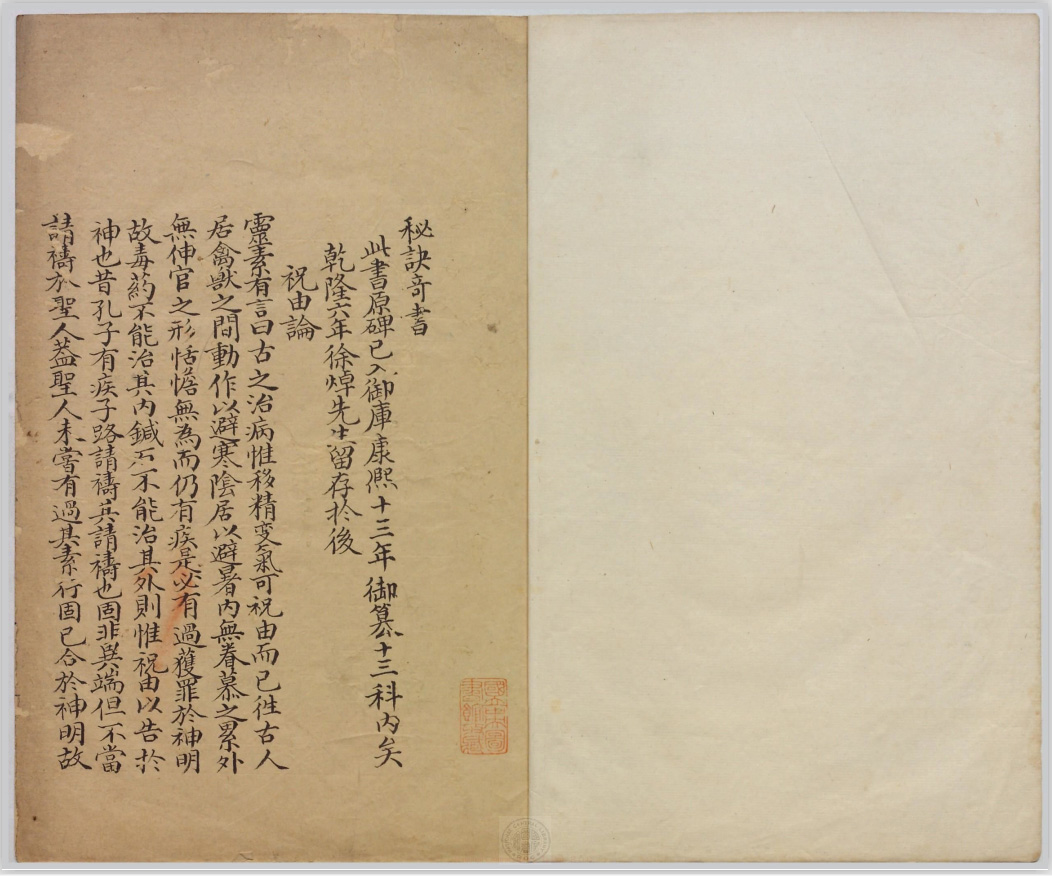 秘訣奇書
此書原碑已入御庫康熈十三年御纂十三科內矣
乾隆六年徐焯先生留存扵後
祝由論
靈素有言曰古之治病惟移精变氣可祝由而已徃古人
居禽獸之間動作以避寒陰居以避暑內無眷慕之累外
無伸官之形恬憺無為而仍有疾是必有過獲罪於神明
故毒葯不能治其內鍼石不能治其外則惟祝由以告扵
神也昔孔子有疾子路請禱其請禱也固非異端但不當
請禱扵聖人葢聖人未嘗有過其素行固已合於神明故
國立中央圖
書館收藏